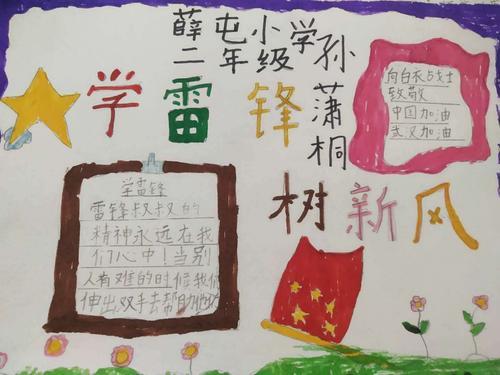 薛屯小学
二年级
孙潇桐
学雷锋
树新风
向白衣战士
致敬
中国加油
武汉加油
学雷锋
雷锋叔叔的
精神永远在我
们心中！当别
人有难的时候我们
伸出双手去帮助他们